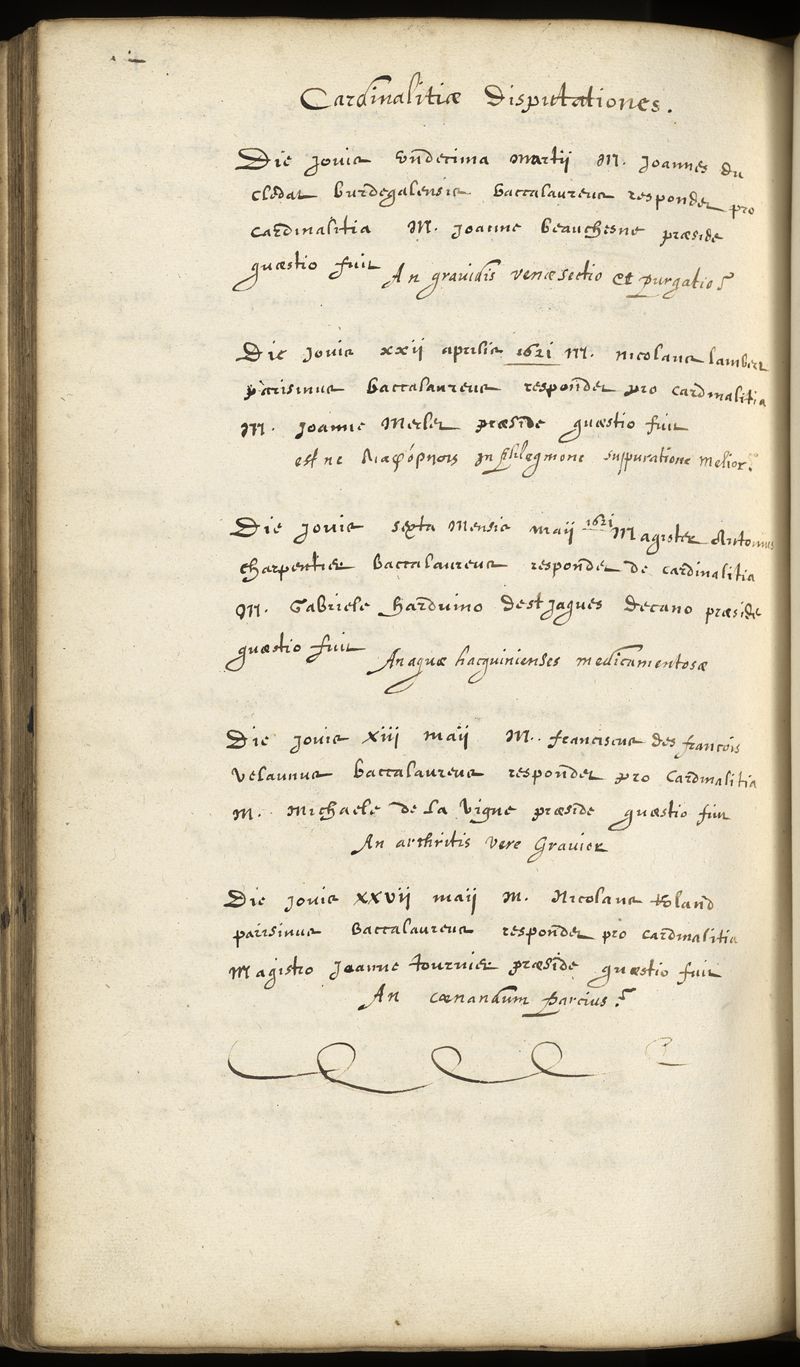 Cardinalitiæ Disputationes.
Die Jovis undecima martij M. Joannes du
Cledat Burdegalensis baccalaureus respondet pro
cardinalitia M. Joanne Beauchesne præside
quæstio fuit An gravidis venæ sectio et purgatio?
Die Jovis xxij aprilis 1621 M. nicolaus lambert
parisinus baccalaureus respondet pro cardinalitia
M. Joanne Merlet præside quæstio fuit
est ne διαφόρησις in phlegmone suppuratione melior?
Die Jovis sexta Mensis maij 1621 Magister Antonius
charpentier baccalaureus respondet de cardinalitia
M. Gabriele harduino destjaques decano præside
quæstio fuit An aquæ hacquinienses medicamentosæ
Die Jovis xiij maij M. franciscus des françois
velaunus baccalaureus respondet pro cardinalitia
M. Michaele de la vigne præside quæstio fuit
An arthritis vere Gravior
Die Jovis xxvij maij M. Nicolaus Roland
parisinus baccalaureus respondet pro cardinalitia
Magistro Joanne tournier præside quæstio fuit
An cœnandum parcius?